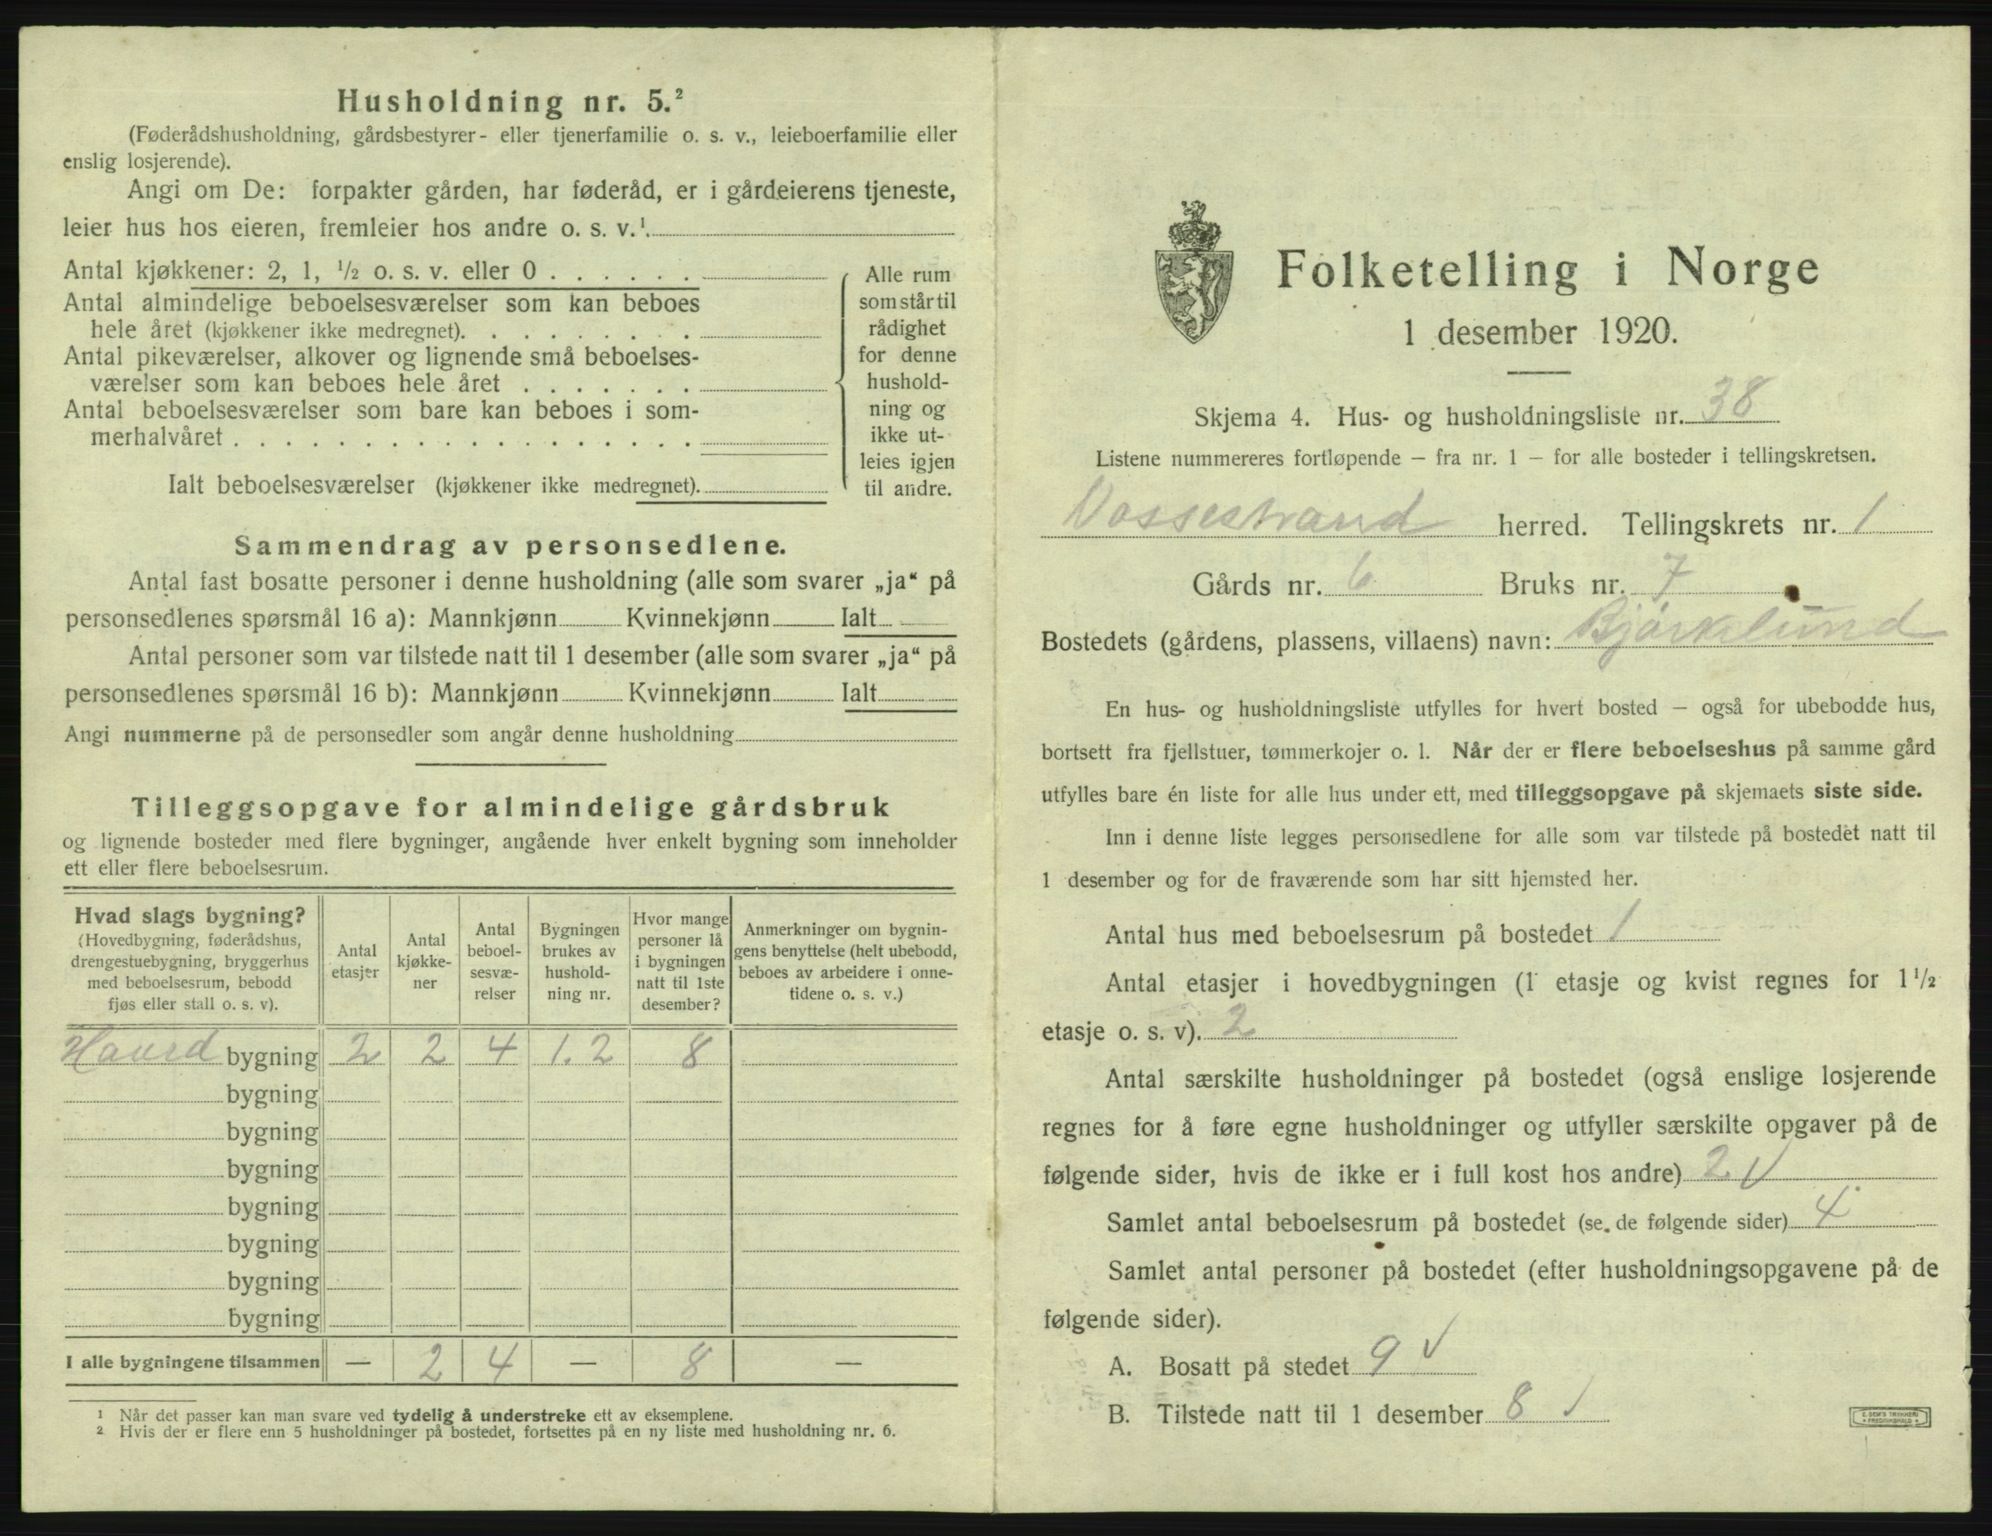 Husholdning nr. 5.²
(Føderådshusholdning, gårdsbestyrer- eller tjenerfamilie o. s. v., leieboerfamilie eller
enslig losjerende).
Angi om De: forpakter gården, har føderåd, er i gårdeierens tjeneste,
leier hus hos eieren, fremleier hos andre o. s. v.¹
Antal kjøkkener: 2, 1, ½ o. s. v. eller 0 . . . . . .
Antal almindelige beboelsesværelser som kan beboes
hele året (kjøkkener ikke medregnet). . . . . . . .
Antal pikeværelser, alkover og lignende små beboelses-
værelser som kan beboes hele året . . . . . . .
Antal beboelsesværelser som bare kan beboes i som-
merhalvåret . . . . . . . . . . . . . . . . . .
Ialt beboelsesværelser (kjøkkener ikke medregnet).
Alle rum
som står til
rådighet
for denne
hushold-
ning og
ikke ut-
leies igjen
til andre.
Sammendrag av personsedlene.
Antal fast bosatte personer i denne husholdning (alle som svarer „ja“ på
personsedlenes spørsmål 16 a): Mannkjønn Kvinnekjønn Ialt
Antal personer som var tilstede natt til 1 desember (alle som svarer „ja“ på
personsedlenes spørsmål 16 b): Mannkjønn Kvinnekjønn Ialt
Angi nummerne på de personsedler som angår denne husholdning
Tilleggsopgave for almindelige gårdsbruk
og lignende bosteder med flere bygninger, angående hver enkelt bygning som inneholder
ett eller flere beboelsesrum.
Hvad slags bygning?
(Hovedbygning, føderådshus,
drengestuebygning, bryggerhus
med beboelsesrum, bebodd
fjøs eller stall o. s. v).
Antal
etasjer
Antal
kjøkke-
ner
Antal
beboel-
sesvæ-
relser
Bygningen
brukes av
hushold-
ning nr.
Hvor mange
personer lå
i bygningen
natt til 1ste
desember?
Anmerkninger om bygnin-
gens benyttelse (helt ubebodd,
beboes av arbeidere i onne-
tidene o. s. v.)
Hoved bygning 2 2 4 1. 2 8
bygning
bygning
bygning
bygning
bygning
bygning
bygning
I alle bygningene tilsammen — 2 4 — 8 —
¹ Når det passer kan man svare ved tydelig å understreke ett av eksemplene.
² Hvis der er flere enn 5 husholdninger på bostedet, fortsettes på en ny liste med husholdning nr. 6.
Folketelling i Norge
1 desember 1920.
Skjema 4. Hus- og husholdningsliste nr. 38
Listene nummereres fortløpende – fra nr. 1 – for alle bosteder i tellingskretsen.
Vossestrand herred. Tellingskrets nr. 1
Gårds nr. 6 Bruks nr. 7
Bostedets (gårdens, plassens, villaens) navn: Bjørklund
En hus- og husholdningsliste utfylles for hvert bosted – også for ubebodde hus,
bortsett fra fjellstuer, tømmerkojer o. l. Når der er flere beboelseshus på samme gård
utfylles bare én liste for alle hus under ett, med tilleggsopgave på skjemaets siste side.
Inn i denne liste legges personsedlene for alle som var tilstede på bostedet natt til
1 desember og for de fraværende som har sitt hjemsted her.
Antal hus med beboelsesrum på bostedet 1
Antal etasjer i hovedbygningen (1 etasje og kvist regnes for 1 ½
etasje o. s. v). 2
Antal særskilte husholdninger på bostedet (også enslige losjerende
regnes for å føre egne husholdninger og utfyller særskilte opgaver på de
følgende sider, hvis de ikke er i full kost hos andre) 2 √
Samlet antal beboelsesrum på bostedet (se de følgende sider) 4
Samlet antal personer på bostedet (efter husholdningsopgavene på de
følgende sider).
A. Bosatt på stedet 9 √
B. Tilstede natt til 1 desember 8 √
E. SEM'S TRYKKERI
FREDRIKSHALD